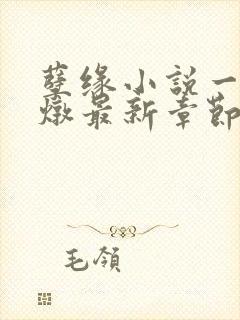 孽缘小説一
燉最新章節
毛領